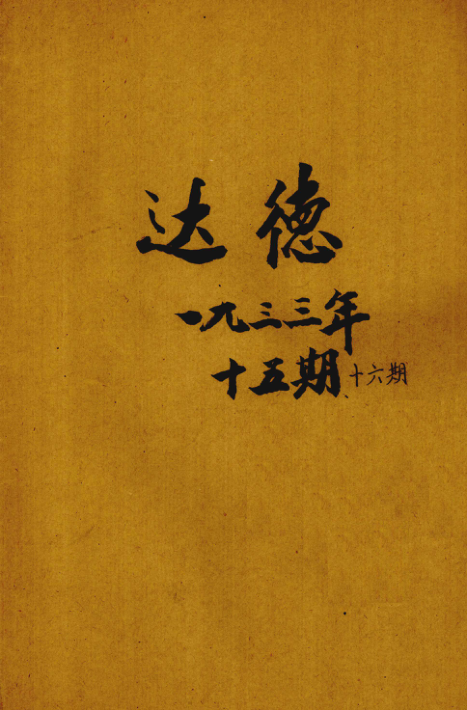 达德
一九三三年
十五期 十六期